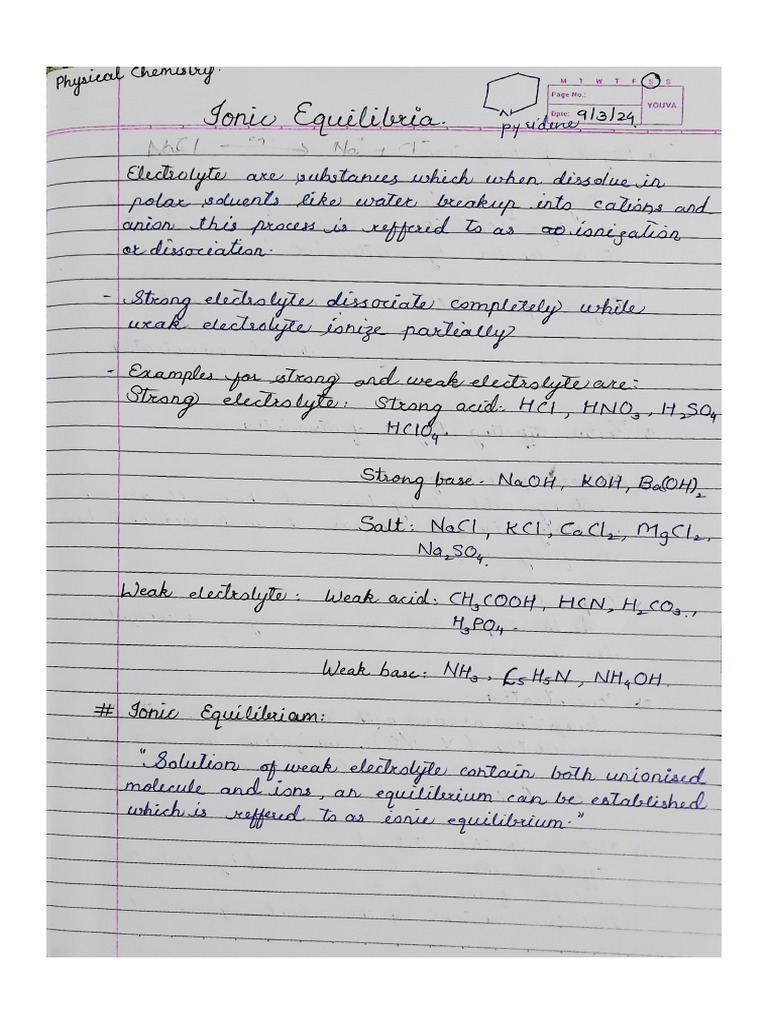 Physical Chemistry.
M T W T F S S
Page No.:
Date: 9/3/24
YOUVA
N
pyridine
Ionic Equilibria.
NaCl → Na + Cl-
Electrolyte are substances which when dissolve in
polar solvents like water breakup into cations and
anion this process is reffered to as ionization
or dissociation.
- Strong electrolyte dissociate completely while
weak electrolyte ionize partially
- Examples for strong and weak electrolyte are:
Strong electrolyte: Strong acid: HCl, HNO3, H2SO4
HClO4.
Strong base - NaOH, KOH, Ba(OH)2
Salt: NaCl, KCl, CaCl2, MgCl2,
Na2SO4.
Weak electrolyte: Weak acid: CH3COOH, HCN, H2CO3,
H3PO4.
Weak base: NH3, C5H5N, NH4OH.
# Ionic Equilibriam:
"Solution of weak electrolyte contain both unionised
molecule and ions, an equilibrium can be established
which is reffered to as ionic equilibrium."